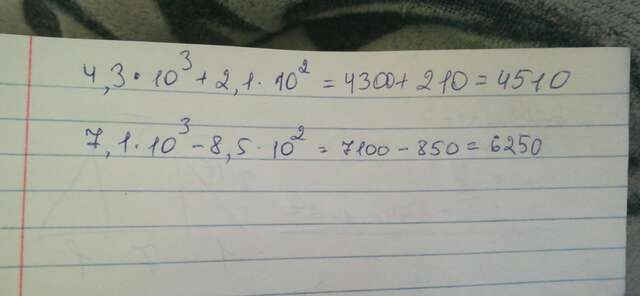 4,3·10³+2,1·10²=4300+210=4510
7,1·10³-8,5·10²=7100-850=6250